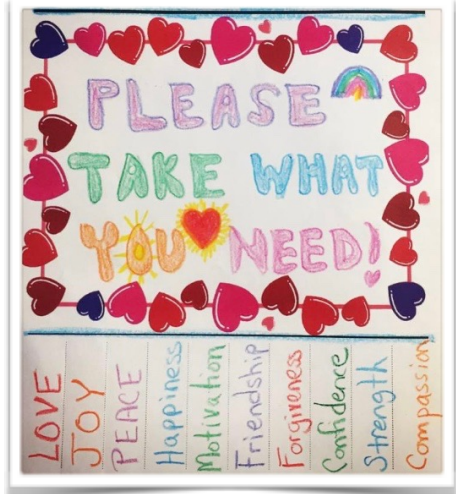 PLEASE
TAKE WHAT
YOU NEED!
LOVE
JOY
PEACE
Happiness
Motivation
Friendship
Forgiveness
Confidence
Strength
Compassion